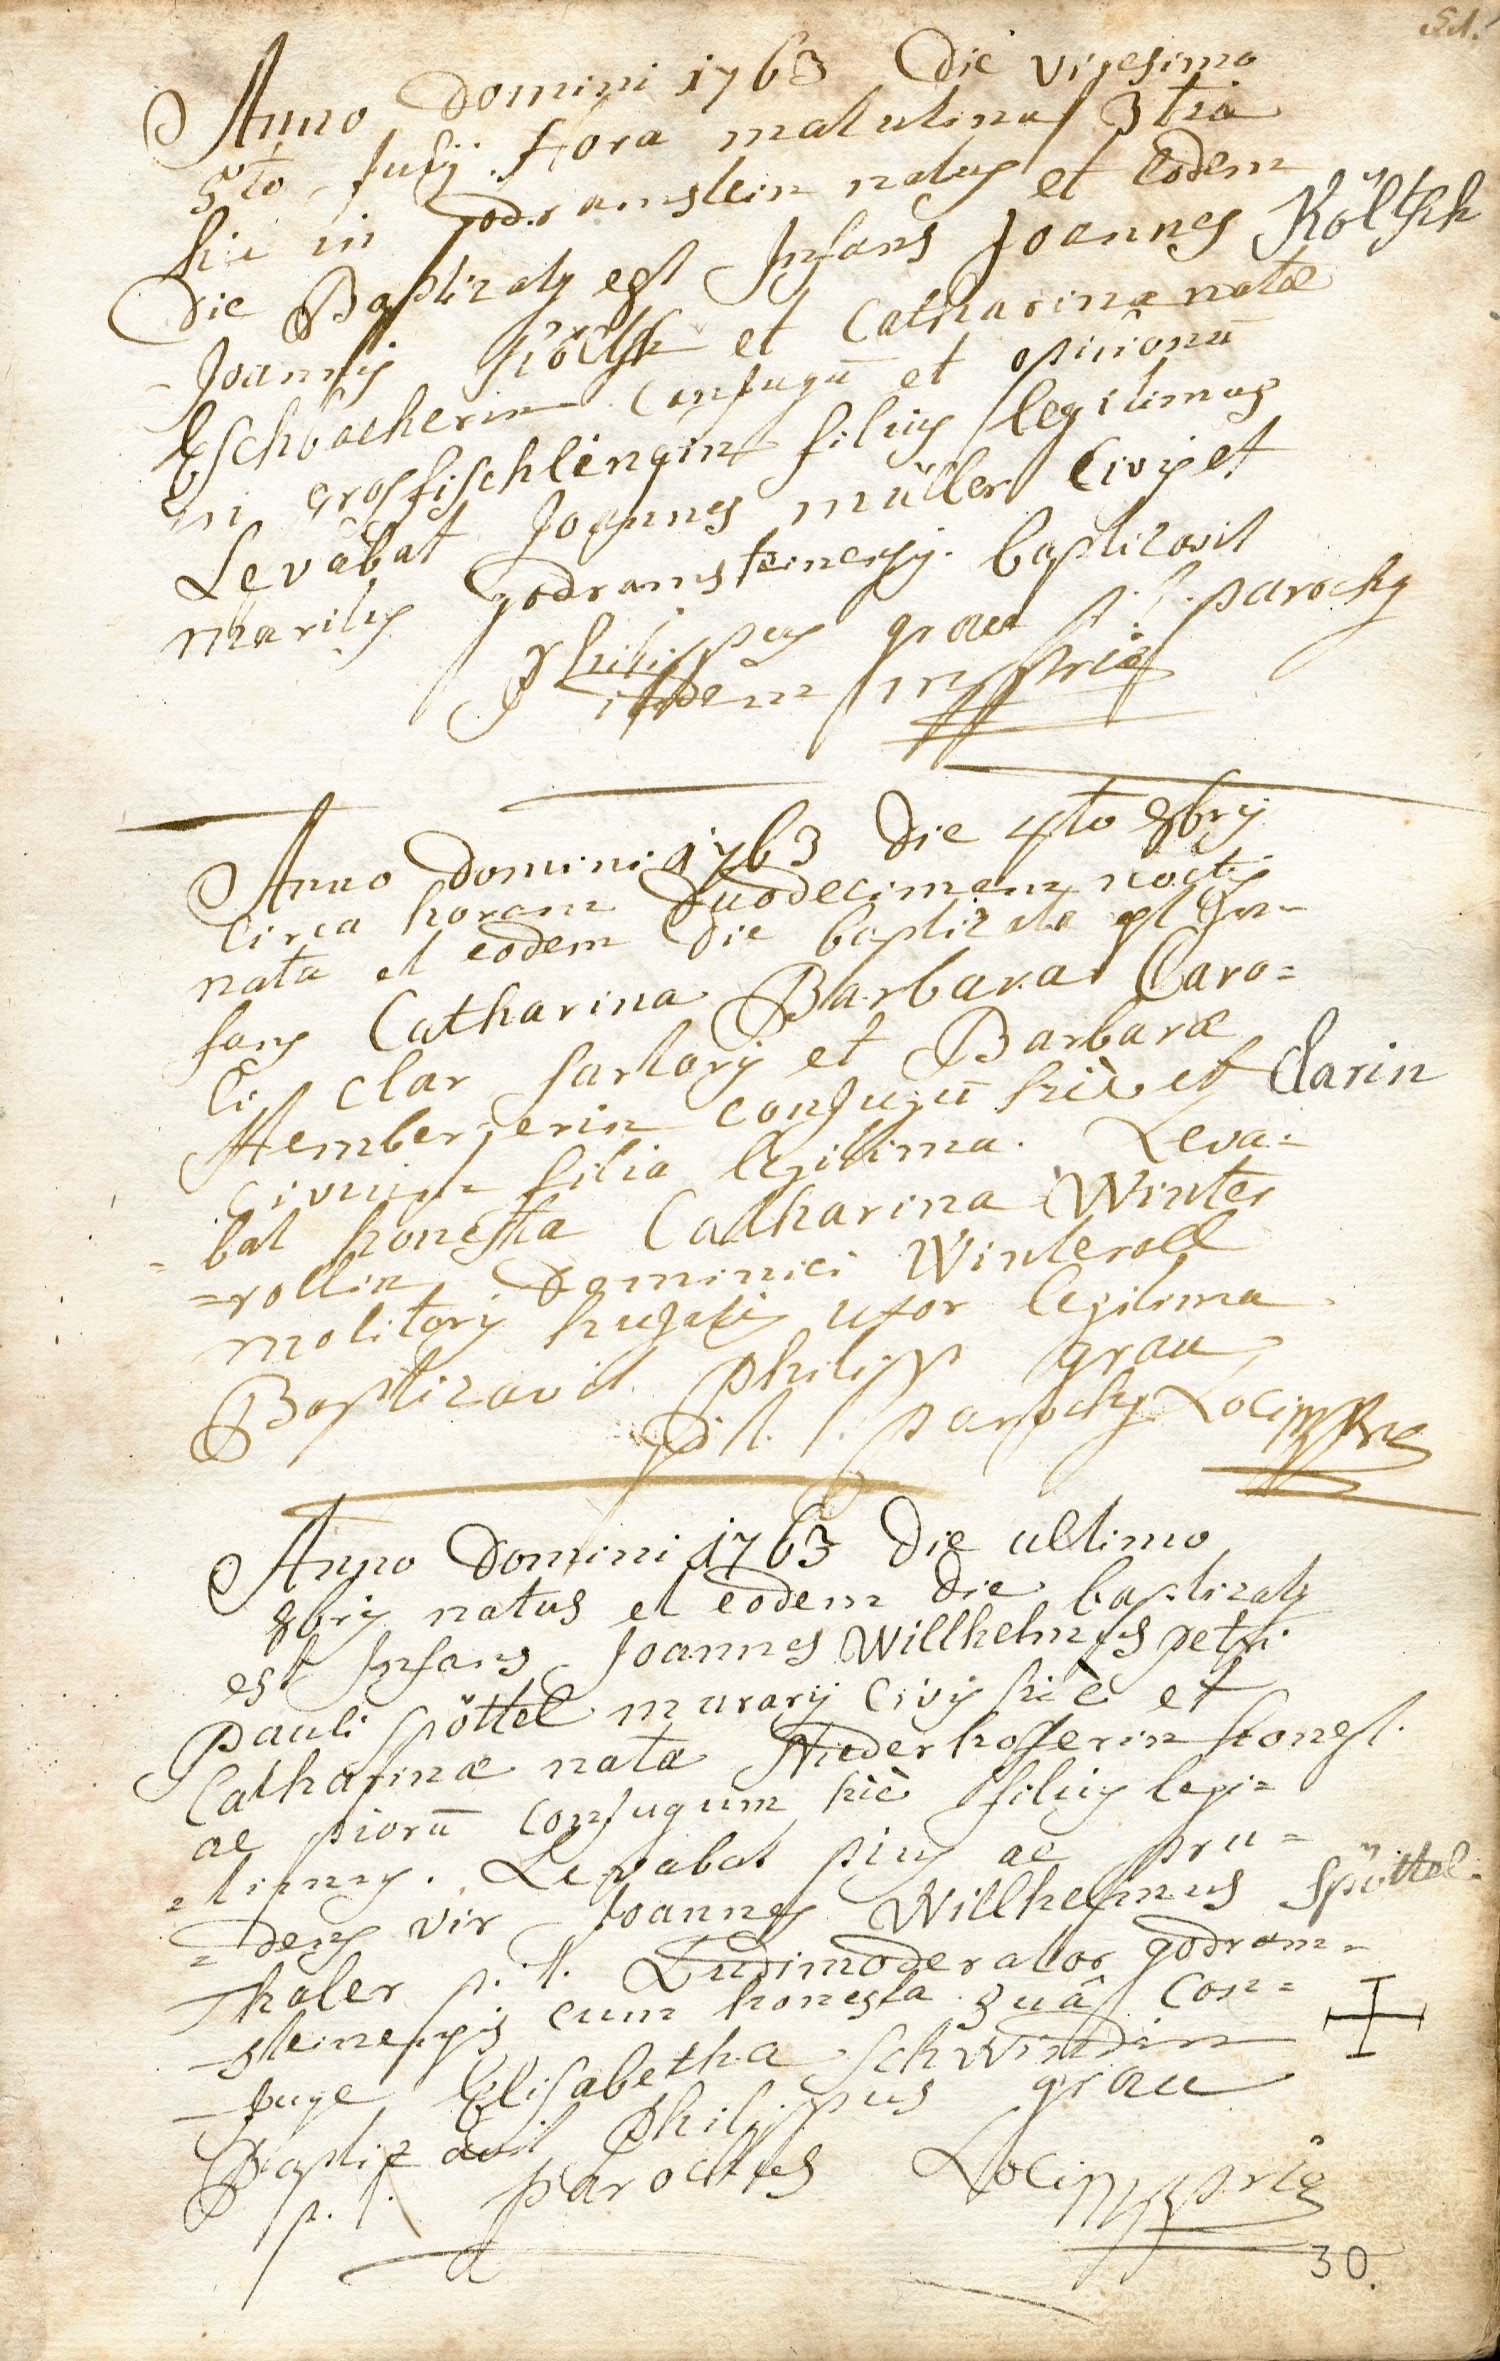 51.
Anno Domini 1763 Die vigesimo
5to Julij Hora matutina 3tia
hic in godramstein natus et eodem
Die Baptizatus est Infans Joannes Költsch
Joannis Költsch et Catharinæ natæ
Eschbacherin Conjugū et piiorū
in grosfischlingin filius legitimus
Levabat Joannes müller Civis et
maritus godramsteinensis. baptizavit
Philippus grau p. t. parochus
ibidem mpriâ
Anno Domini 1763 Die 4to 8bris
Circa horam Duodecimam noctis
nata et eodem Die baptizata est In-
fans Catharina Barbara Caro=
li Clar sartoris et Barbaræ
Hembergerin conjugū hic et Clarin
Civium filia legitima. Leva=
bat honesta Catharina Winter
=rollin Dominici Winteroll
molitoris hujatis uxor legitima
Baptizavit Philipp grau
p. t. parochus Loci mpriâ
Anno Domini 1763 Die ultimo
8bris natus et eodem Die baptizatus
est Infans Joannes Willhelmus petri
Pauli spöttel murarij Civis hiè et
Catharinæ natæ Niederhofferin honest.
ac piorū conjugum hiè filius legi=
=timus. Levabat pius ac pru=
=dens vir Joannes Willhelmus Spöttel.
Thaler p. t. Ludimoderator godram=
steinensis cum honesta suâ Con=
juge Elisabetha Schwindin
Baptizavit Philippus grau
p. t. parochus Loci mpriâ
30.